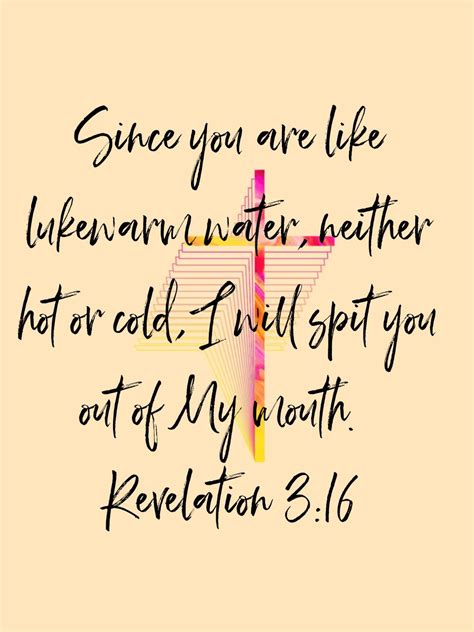 Since you are like
lukewarm water, neither
hot or cold, I will spit you
out of My mouth.
Revelation 3:16